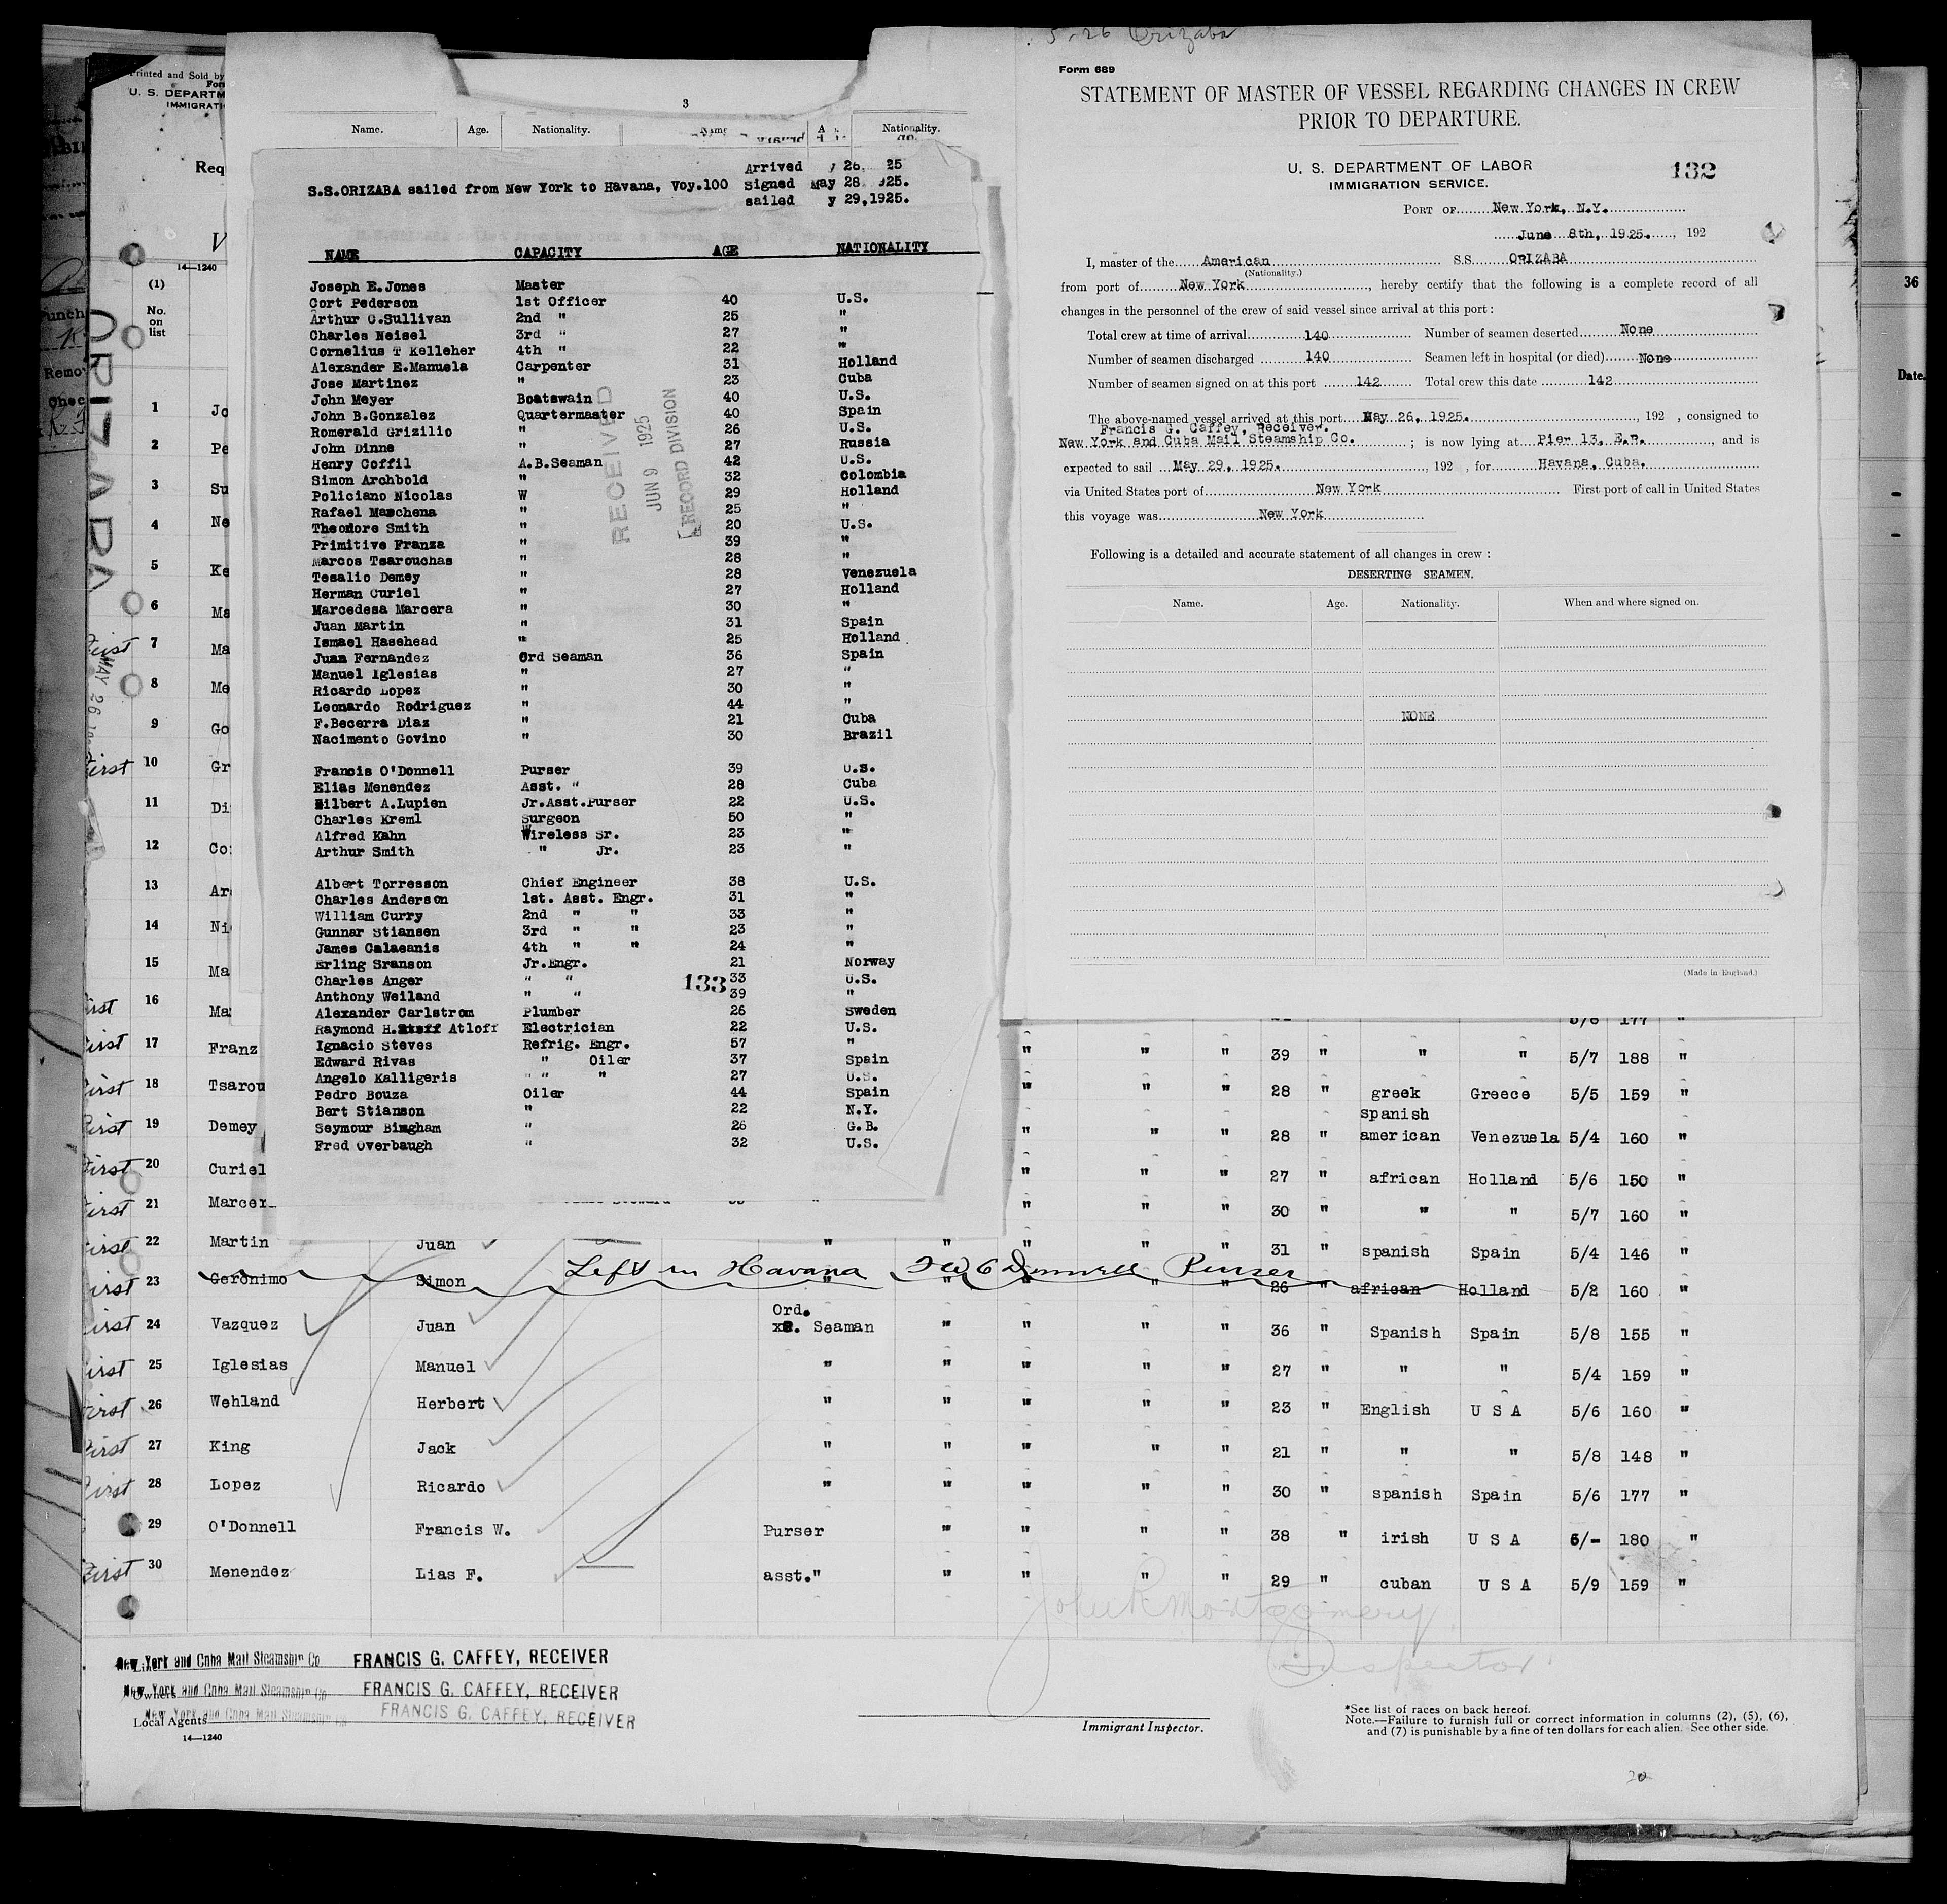 5-26 Orizaba
Printed and Sold by
U. S. DEPARTM
IMMIGRATI
Req
14—1240
(1)
No.
on
list
ORIZABA
MAY 26
3
Name. Age. Nationality. Nationality.
S.S.ORIZABA sailed from New York to Havana, Voy.100
Arrived y 26, 25
Signed May 28 925.
sailed y 29,1925.
NAME CAPACITY AGE NATIONALITY
Joseph E.Jones Master
Cort Pederson 1st Officer 40 U.S.
Arthur O.Sullivan 2nd " 25 "
Charles Neisel 3rd " 27 "
Cornelius T Kelleher 4th " 22 "
Alexander E.Manuela Carpenter 31 Holland
Jose Martinez " 23 Cuba
John Meyer Boatswain 40 U.S.
John B.Gonzalez Quartermaster 40 Spain
Romerald Grizilio " 26 U.S.
John Dinne " 27 Russia
Henry Coffil A.B.Seaman 42 U.S.
Simon Archbold " 32 Colombia
Policiano Nicolas W 29 Holland
Rafael Maschena " 25 "
Theodore Smith " 20 U.S.
Primitive Franza " 39 "
Marcos Tsarouchas " 28 "
Tesalio Demey " 28 Venezuela
Herman Curiel " 27 Holland
Marcedesa Marcera " 30 "
Juan Martin " 31 Spain
Ismael Hasehead " 25 Holland
Juan Fernandez Ord Seaman 36 Spain
Manuel Iglesias " 27 "
Ricardo Lopez " 30 "
Leonardo Rodriguez " 44 "
F.Becerra Diaz " 21 Cuba
Nacimento Govino " 30 Brazil
Francis O'Donnell Purser 39 U.S.
Elias Menendez Asst. " 28 Cuba
Gilbert A.Lupien Jr.Asst.Purser 22 U.S.
Charles Kreml Surgeon 50 "
Alfred Kahn Wireless Sr. 23 "
Arthur Smith " Jr. 23 "
Albert Torresson Chief Engineer 38 U.S.
Charles Anderson 1st. Asst. Engr. 31 "
William Curry 2nd " " 33 "
Gunnar Stiansen 3rd " " 23 "
James Calaeanis 4th " " 24 "
Erling Sranson Jr.Engr. 21 Norway
Charles Anger " " 33 U.S.
Anthony Weiland " " 39 "
Alexander Carlstrom Plumber 26 Sweden
Raymond H. Atloff Electrician 22 U.S.
Ignacio Steves Refrig. Engr. 57 "
Edward Rivas " Oiler 37 Spain
Angelo Kalligeris " " " 27 U.S.
Pedro Bouza Oiler 44 Spain
Bert Stianson " 22 N.Y.
Seymour Bingham " 26 G.B.
Fred Overbaugh " 32 U.S.
133
RECEIVED
JUN 9 1925
RECORD DIVISION
Form 689
STATEMENT OF MASTER OF VESSEL REGARDING CHANGES IN CREW
PRIOR TO DEPARTURE.
U. S. DEPARTMENT OF LABOR
IMMIGRATION SERVICE.
132
PORT OF New York, N.Y.
June 8th, 1925. , 192
I, master of the American S.S. ORIZABA
(Nationality.)
from port of New York , hereby certify that the following is a complete record of all
changes in the personnel of the crew of said vessel since arrival at this port :
Total crew at time of arrival 140 Number of seamen deserted None
Number of seamen discharged 140 Seamen left in hospital (or died) None
Number of seamen signed on at this port 142 Total crew this date 142
The above-named vessel arrived at this port May 26, 1925. , 192 , consigned to
Francis G. Caffey, Receiver.
New York and Cuba Mail Steamship Co. ; is now lying at Pier 13, E.R. , and is
expected to sail May 29, 1925. , 192 , for Havana, Cuba.
via United States port of New York First port of call in United States
this voyage was New York
Following is a detailed and accurate statement of all changes in crew :
DESERTING SEAMEN.
Name. Age. Nationality. When and where signed on.
NONE
(Made in England.)
36
Date.
1 Jo
2 Pe
3 Su
4 Ne
5 Ke
6 Ma
first 7 Ma
8 Me
9 Go
first 10 Gr
11 Di
12 Co
13 Ar
14 Ni
15 Ma
first 16 Ma 5/6 177 "
first 17 Franz " " " 39 " " " 5/7 188 "
first 18 Tsarou " " " 28 " greek Greece 5/5 159 "
first 19 Demey " " " 28 " spanish american Venezuela 5/4 160 "
first 20 Curiel " " " 27 " african Holland 5/6 150 "
first 21 Marcer " " " 30 " " " 5/7 160 "
first 22 Martin Juan " " " " " 31 " spanish Spain 5/4 146 "
Left in Havana Purser
first 23 Geronimo Simon " " " " " 26 " african Holland 5/2 160 "
first 24 Vazquez Juan Ord. Seaman " " " " 36 " Spanish Spain 5/8 155 "
first 25 Iglesias Manuel " " " " " 27 " " " 5/4 159 "
first 26 Wehland Herbert " " " " " 23 " English U S A 5/6 160 "
first 27 King Jack " " " " " 21 " " " 5/8 148 "
first 28 Lopez Ricardo " " " " " 30 " spanish Spain 5/6 177 "
29 O'Donnell Francis W. Purser " " " " 38 " irish U S A 6/- 180 "
first 30 Menendez Lias F. asst." " " " " 29 " cuban U S A 5/9 159 "
John R Montgomery
Inspector
New York and Cuba Mail Steamship Co FRANCIS G. CAFFEY, RECEIVER
Owners New York and Cuba Mail Steamship Co FRANCIS G. CAFFEY, RECEIVER
Local Agents New York and Cuba Mail Steamship Co FRANCIS G. CAFFEY, RECEIVER
14—1240
Immigrant Inspector.
*See list of races on back hereof.
Note.—Failure to furnish full or correct information in columns (2), (5), (6),
and (7) is punishable by a fine of ten dollars for each alien. See other side.
20